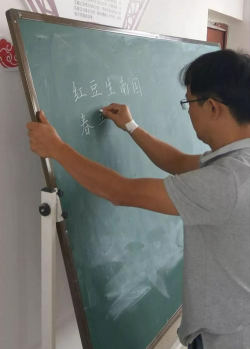 红豆生南国
春